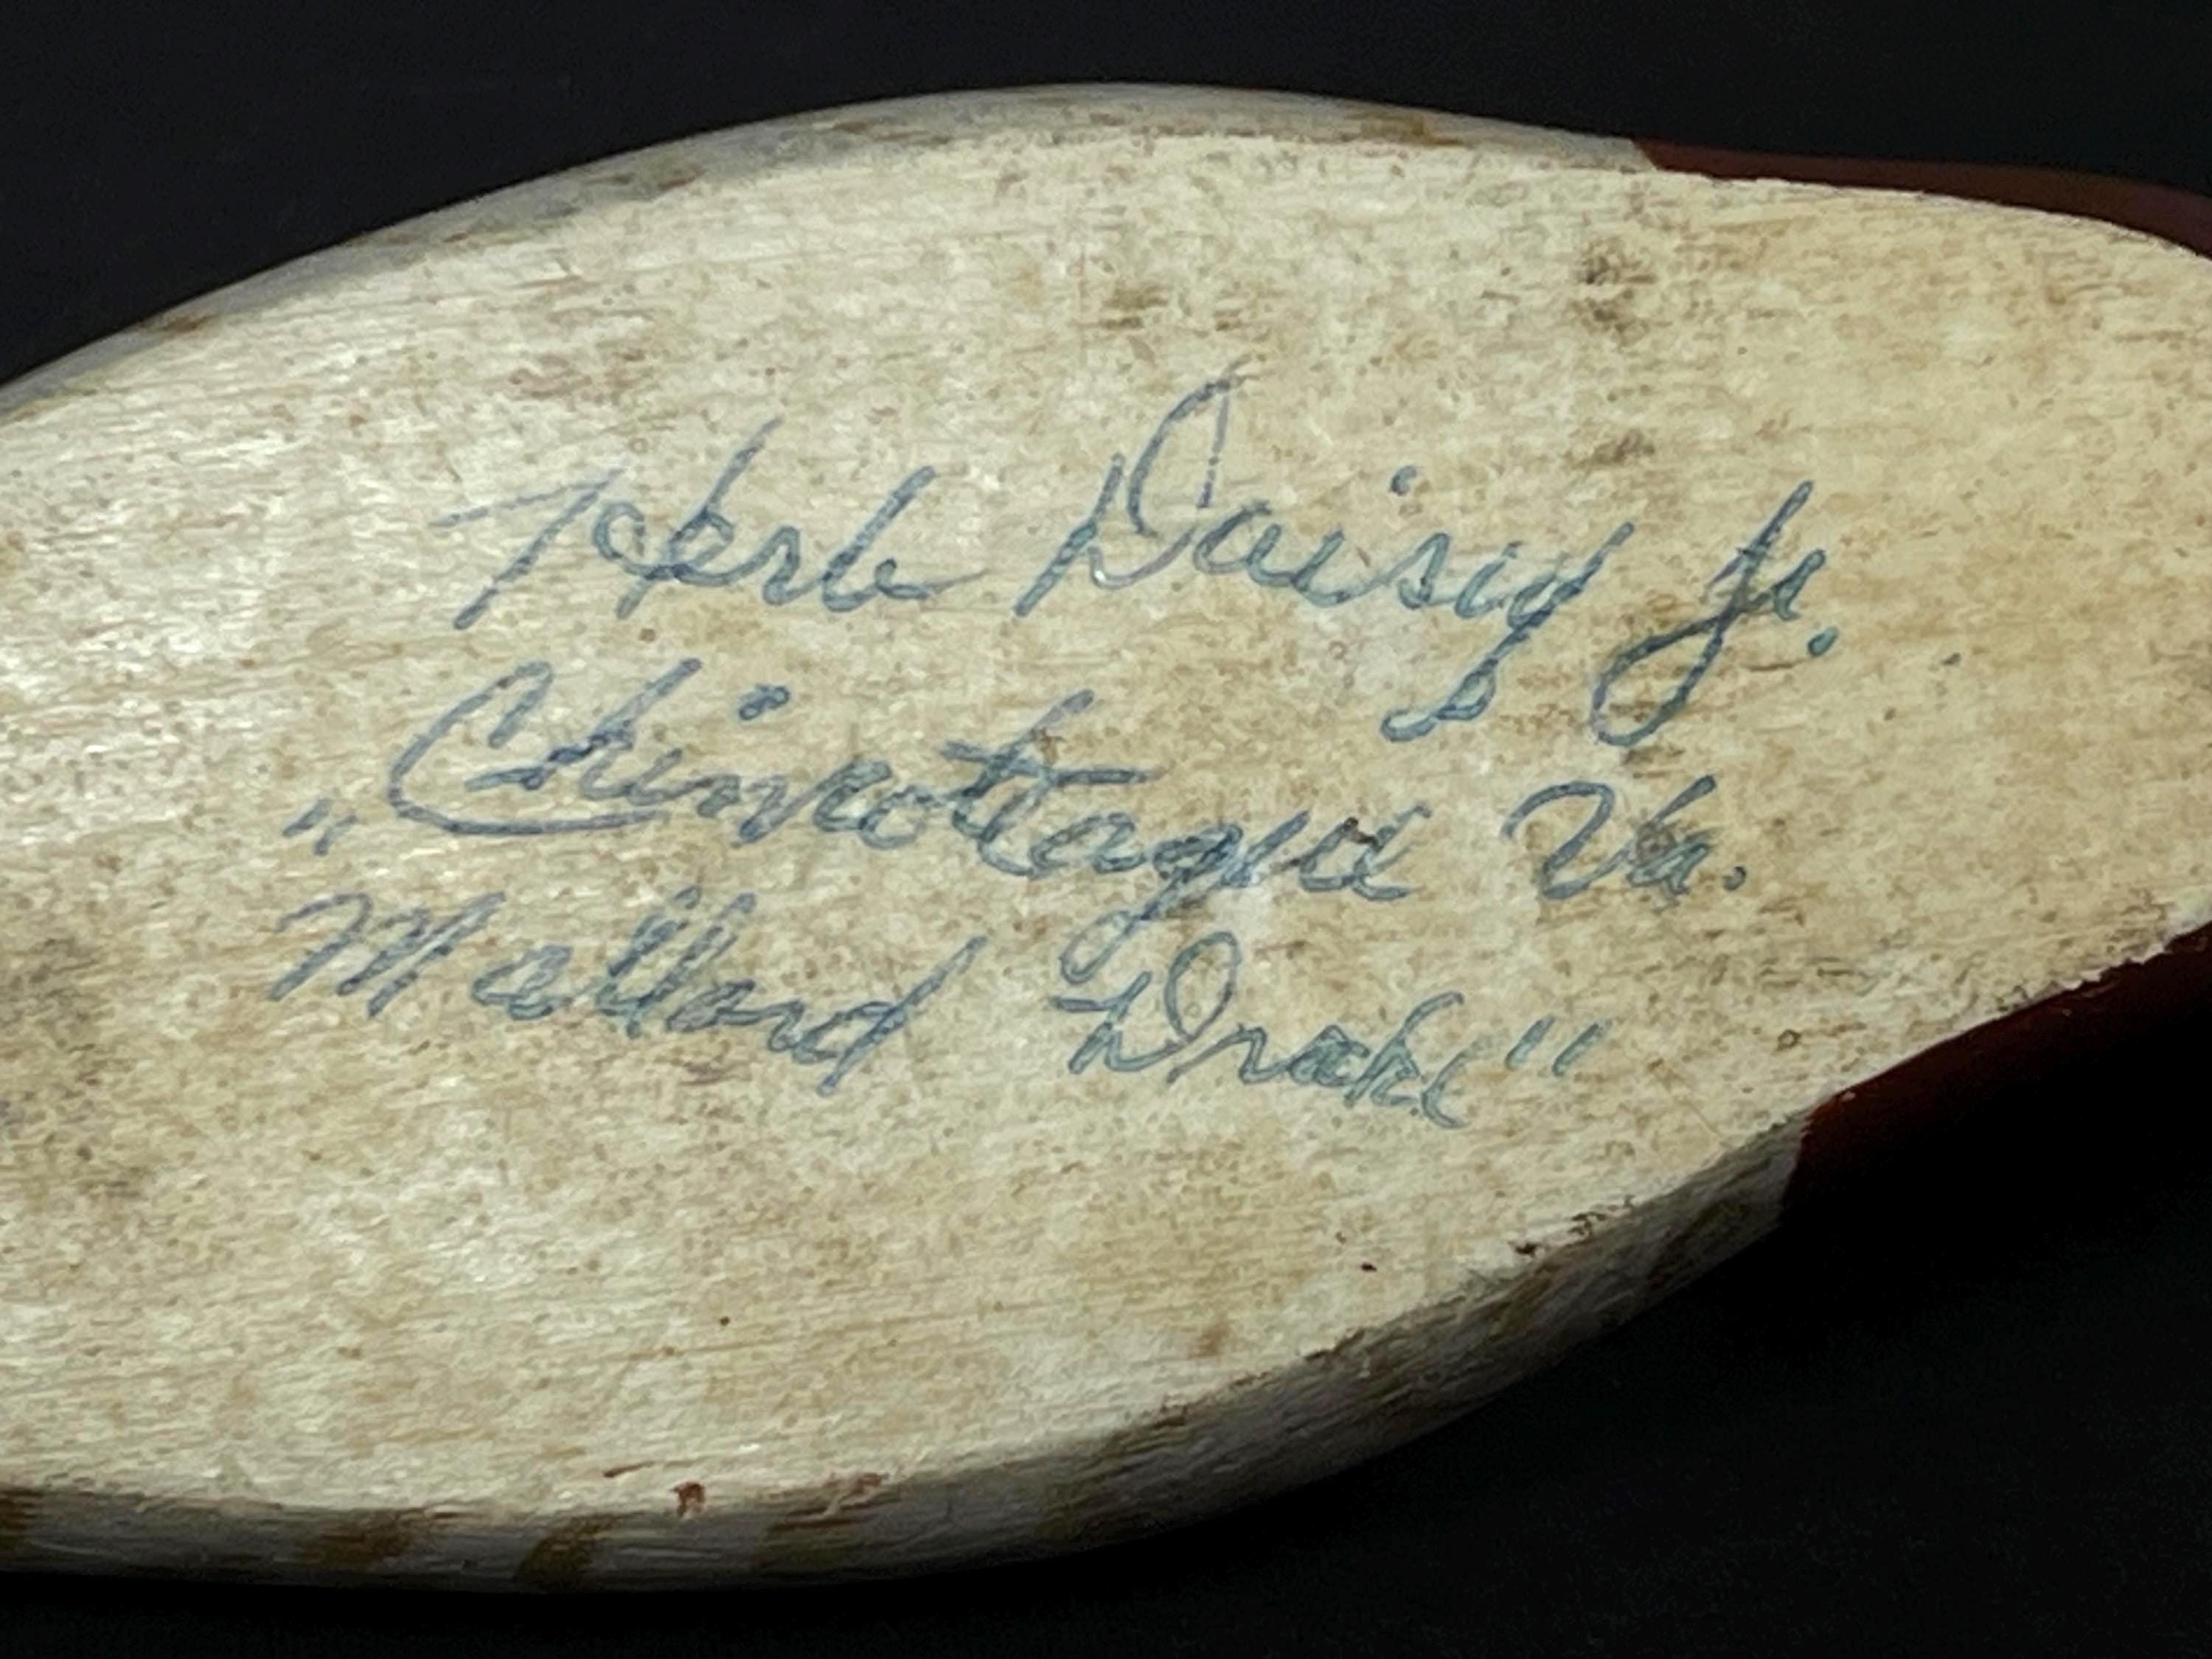 Herb Daisy Jr.
Chincotague Va.
"Mallard Drake"